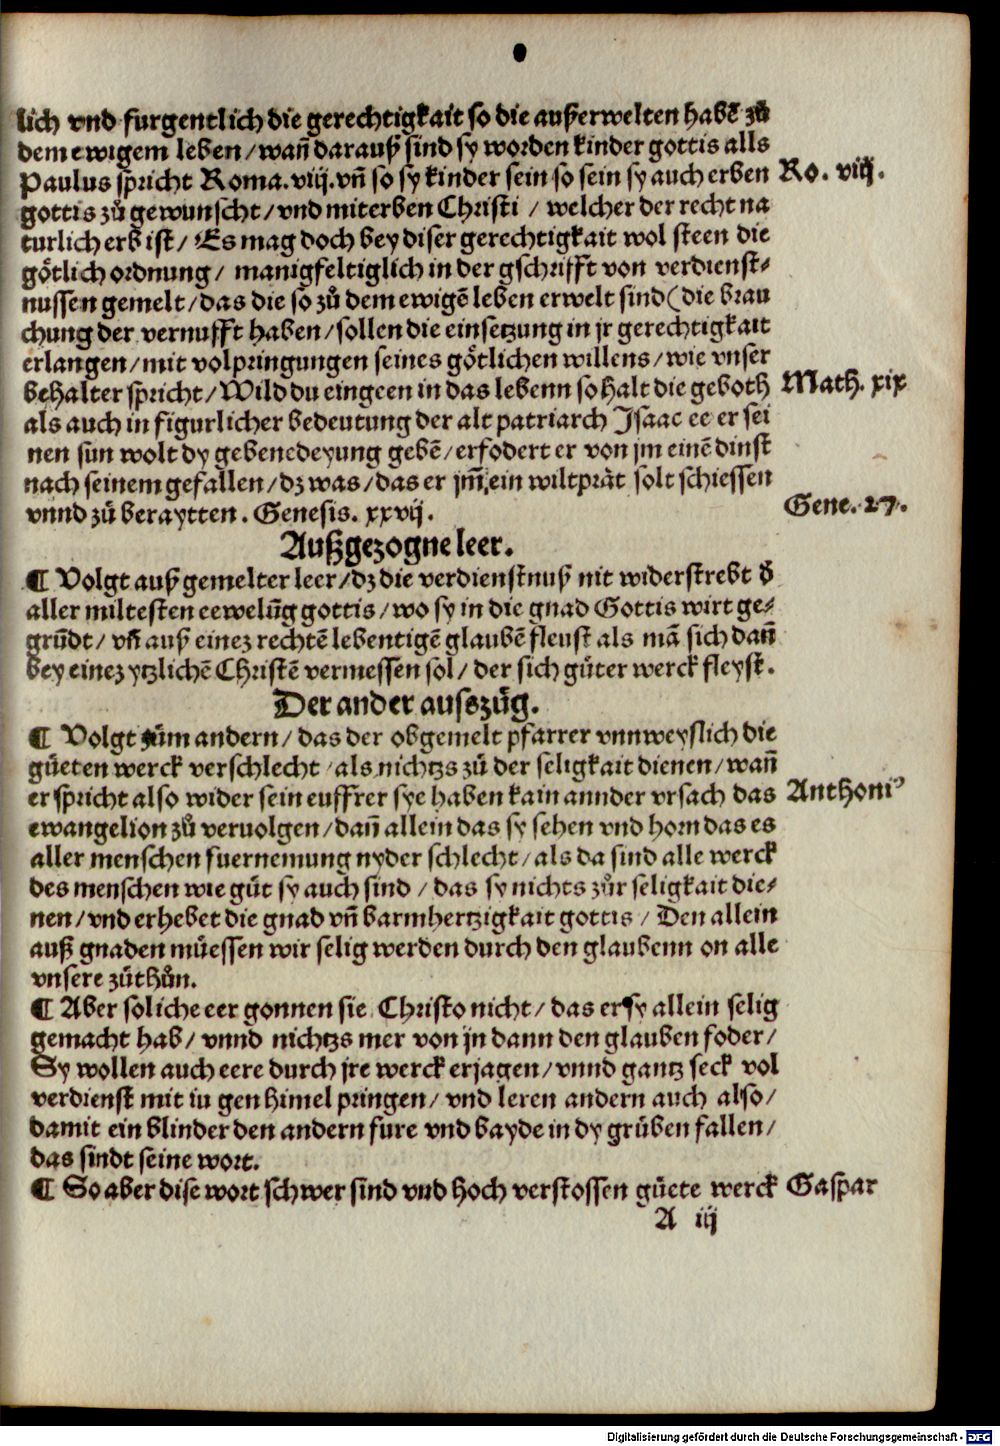 lich vnd furgentlich die gerechtigkait so die außerwelten habẽ zů
dem ewigem leben/wañ darauß sind sy worden kinder gottis alls
Paulus spricht Roma.viij.vñ so sy kinder sein so sein sy auch erben Ro. viij.
gottis zů gewunscht/vnd miterben Christi / welcher der recht na
turlich erb ist/ Es mag doch bey diser gerechtigkait wol steen die
götlich ordnung/ manigfeltiglich in der gschrifft von verdienst-
nussen gemelt/das die so zů dem ewigẽ leben erwelt sind(die brau
chung der vernufft haben/sollen die einsetzung in jr gerechtigkait
erlangen/mit volpringungen seines götlichen willens/wie vnser
behalter spricht/Wild du eingeen in das lebenn so halt die geboth Math. xix
als auch in figurlicher bedeutung der alt patriarch Isaac ee er sei
nen sun wolt dy gebenedeyung gebẽ/erfodert er von jm einẽ dinst
nach seinem gefallen/dz was/das er jm̃ ein wiltprät solt schiessen
vnnd zů beraytten. Genesis. xxvij. Gene. 27.
Außgezogne leer.
¶ Volgt auß gemelter leer/dz die verdienstnuß nit widerstrebt d̄
aller miltesten eewelũg gottis/wo sy in die gnad Gottis wirt ge-
grũdt/ vñ auß einez rechtẽ lebentigẽ glaubẽ fleust als mã sich dañ
bey einez ytzlichẽ Christẽ vermessen sol/ der sich gůter werck fleyst.
Der ander auszůg.
¶ Volgt zům andern/ das der obgemelt pfarrer vnnweyslich die
gůeten werck verschlecht/als nichtzs zů der seligkait dienen/wañ
er spricht also wider sein euffrer sye haben kain annder vrsach das Anthoniꝰ
ewangelion zů veruolgen/dañ allein das sy sehen vnd horn das es
aller menschen fuernemung nyder schlecht/als da sind alle werck
des menschen wie gůt sy auch sind / das sy nichts zůr seligkait die-
nen/vnd erhebet die gnad vñ barmhertzigkait gottis / Den allein
auß gnaden müessen wir selig werden durch den glaubenn on alle
vnsere zůthůn.
¶ Aber soliche eer gonnen sie Christo nicht/das er sy allein selig
gemacht hab/ vnnd nichtzs mer von jn dann den glauben foder/
Sy wollen auch eere durch jre werck erjagen/vnnd gantz seck vol
verdienst mit in gen himel pringen/ vnd leren andern auch also/
damit ein blinder den andern fure vnd bayde in dy grůben fallen/
das sindt seine wort.
¶ So aber dise wort schwer sind vnd hoch verstossen gůete werck Gaspar
A iij
Digitalisierung gefördert durch die Deutsche Forschungsgemeinschaft - DFG